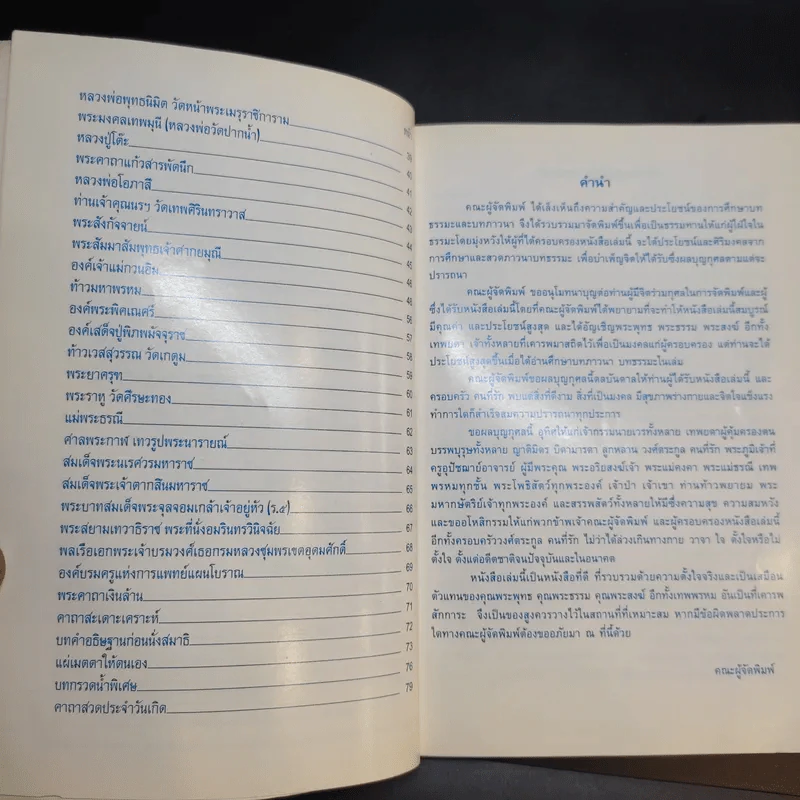 หลวงพ่อพุทธนิมิต วัดหน้าพระเมรุราชิการาม
พระมงคลเทพมุนี (หลวงพ่อวัดปากน้ำ) 39
หลวงปู่โต๊ะ 40
พระคาถาแก้วสารพัดนึก 41
หลวงพ่อโอภาสี 42
ท่านเจ้าคุณนรฯ วัดเทพศิรินทราวาส 43
พระสังกัจจายน์ 44
พระสัมมาสัมพุทธเจ้าศากยมุณี 45
องค์เจ้าแม่กวนอิม 46
ท้าวมหาพรหม
องค์พระพิคเณศรี 56
องค์เสด็จปู่พิภพมัจจุราช 57
ท้าวเวสสุวรรณ วัดเกตูม 58
พระยาครุฑ 59
พระราหู วัดศีรษะทอง 60
แม่พระธรณี 61
ศาลพระกาฬ เทวรูปพระนารายณ์ 62
สมเด็จพระนเรศวรมหาราช 63
สมเด็จพระเจ้าตากสินมหาราช 64
พระบาทสมเด็จพระจุลจอมเกล้าเจ้าอยู่หัว (ร.๕) 65
พระสยามเทวาธิราช พระที่นั่งอมรินทรวินิจฉัย 66
พลเรือเอกพระเจ้าบรมวงศ์เธอกรมหลวงชุมพรเขตอุดมศักดิ์ 68
องค์บรมครูแห่งการแพทย์แผนโบราณ 69
พระคาถาเงินล้าน 70
คาถาสะเดาะเคราะห์ 71
บทคำอธิษฐานก่อนนั่งสมาธิ 72
แผ่เมตตาให้ตนเอง 73
บทกรวดน้ำพิเศษ 76
คาถาสวดประจำวันเกิด 79
คำนำ
คณะผู้จัดพิมพ์ ได้เล็งเห็นถึงความสำคัญและประโยชน์ของการศึกษาบท
ธรรมะและบทภาวนา จึงได้รวบรวมมาจัดพิมพ์ขึ้นเพื่อเป็นธรรมทานให้แก่ผู้ใฝ่ใจใน
ธรรมะโดยมุ่งหวังให้ผู้ที่ได้ครอบครองหนังสือเล่มนี้ จะได้ประโยชน์และศิริมงคลจาก
การศึกษาและสวดภาวนาบทธรรมะ เพื่อบำเพ็ญจิตให้ได้รับซึ่งผลบุญกุศลตามแต่จะ
ปรารถนา
คณะผู้จัดพิมพ์ ขออนุโมทนาบุญต่อท่านผู้มีจิตร่วมกุศลในการจัดพิมพ์และผู้
ซึ่งได้รับหนังสือเล่มนี้โดยที่คณะผู้จัดพิมพ์ได้พยายามที่จะทำให้หนังสือเล่มนี้สมบูรณ์
มีคุณค่า และประโยชน์สูงสุด และได้อัญเชิญพระพุทธ พระธรรม พระสงฆ์ อีกทั้ง
เทพยดา เจ้าทั้งหลายที่เคารพมาสถิตไว้เพื่อเป็นมงคลแก่ผู้ครอบครอง แต่ท่านจะได้
ประโยชน์สูงสุดขึ้นเมื่อได้อ่านศึกษาบทภาวนา บทธรรมะในเล่ม
คณะผู้จัดพิมพ์ขอผลบุญกุศลนี้ดลบันดาลให้ท่านผู้ได้รับหนังสือเล่มนี้ และ
ครอบครัว คนที่รัก พบแต่สิ่งที่ดีงาม สิ่งที่เป็นมงคล มีสุขภาพร่างกายและจิตใจแข็งแรง
ทำการใดก็สำเร็จสมความปรารถนาทุกประการ
ขอผลบุญกุศลนี้ อุทิศให้แก่เจ้ากรรมนายเวรทั้งหลาย เทพยดาผู้คุ้มครองตน
บรรพบุรุษทั้งหลาย ญาติมิตร บิดามารดา ลูกหลาน วงศ์ตระกูล คนที่รัก พระภูมิเจ้าที่
ครูอุปัชฌาย์อาจารย์ ผู้มีพระคุณ พระอริยสงฆ์เจ้า พระแม่คงคา พระแม่ธรณี เทพ
พรหมทุกชั้น พระโพธิสัตว์ทุกพระองค์ เจ้าป่า เจ้าเขา ท่านท้าวพยายม พระ
มหากษัตริย์เจ้าทุกพระองค์ และสรรพสัตว์ทั้งหลายให้มีซึ่งความสุข ความสมหวัง
และขออโหสิกรรมให้แก่พวกข้าพเจ้าคณะผู้จัดพิมพ์ และผู้ครอบครองหนังสือเล่มนี้
อีกทั้งครอบครัววงศ์ตระกูล คนที่รัก ไม่ว่าได้ล่วงเกินทางกาย วาจา ใจ ตั้งใจหรือไม่
ตั้งใจ ตั้งแต่อดีตชาติจนปัจจุบันและในอนาคต
หนังสือเล่มนี้เป็นหนังสือที่ดี ที่รวบรวมด้วยความตั้งใจจริงและเป็นเสมือน
ตัวแทนของคุณพระพุทธ คุณพระธรรม คุณพระสงฆ์ อีกทั้งเทพพรหม อันเป็นที่เคารพ
สักการะ จึงเป็นของสูงควรวางไว้ในสถานที่ที่เหมาะสม หากมีข้อผิดพลาดประการ
ใดทางคณะผู้จัดพิมพ์ต้องขออภัยมา ณ ที่นี้ด้วย
คณะผู้จัดพิมพ์